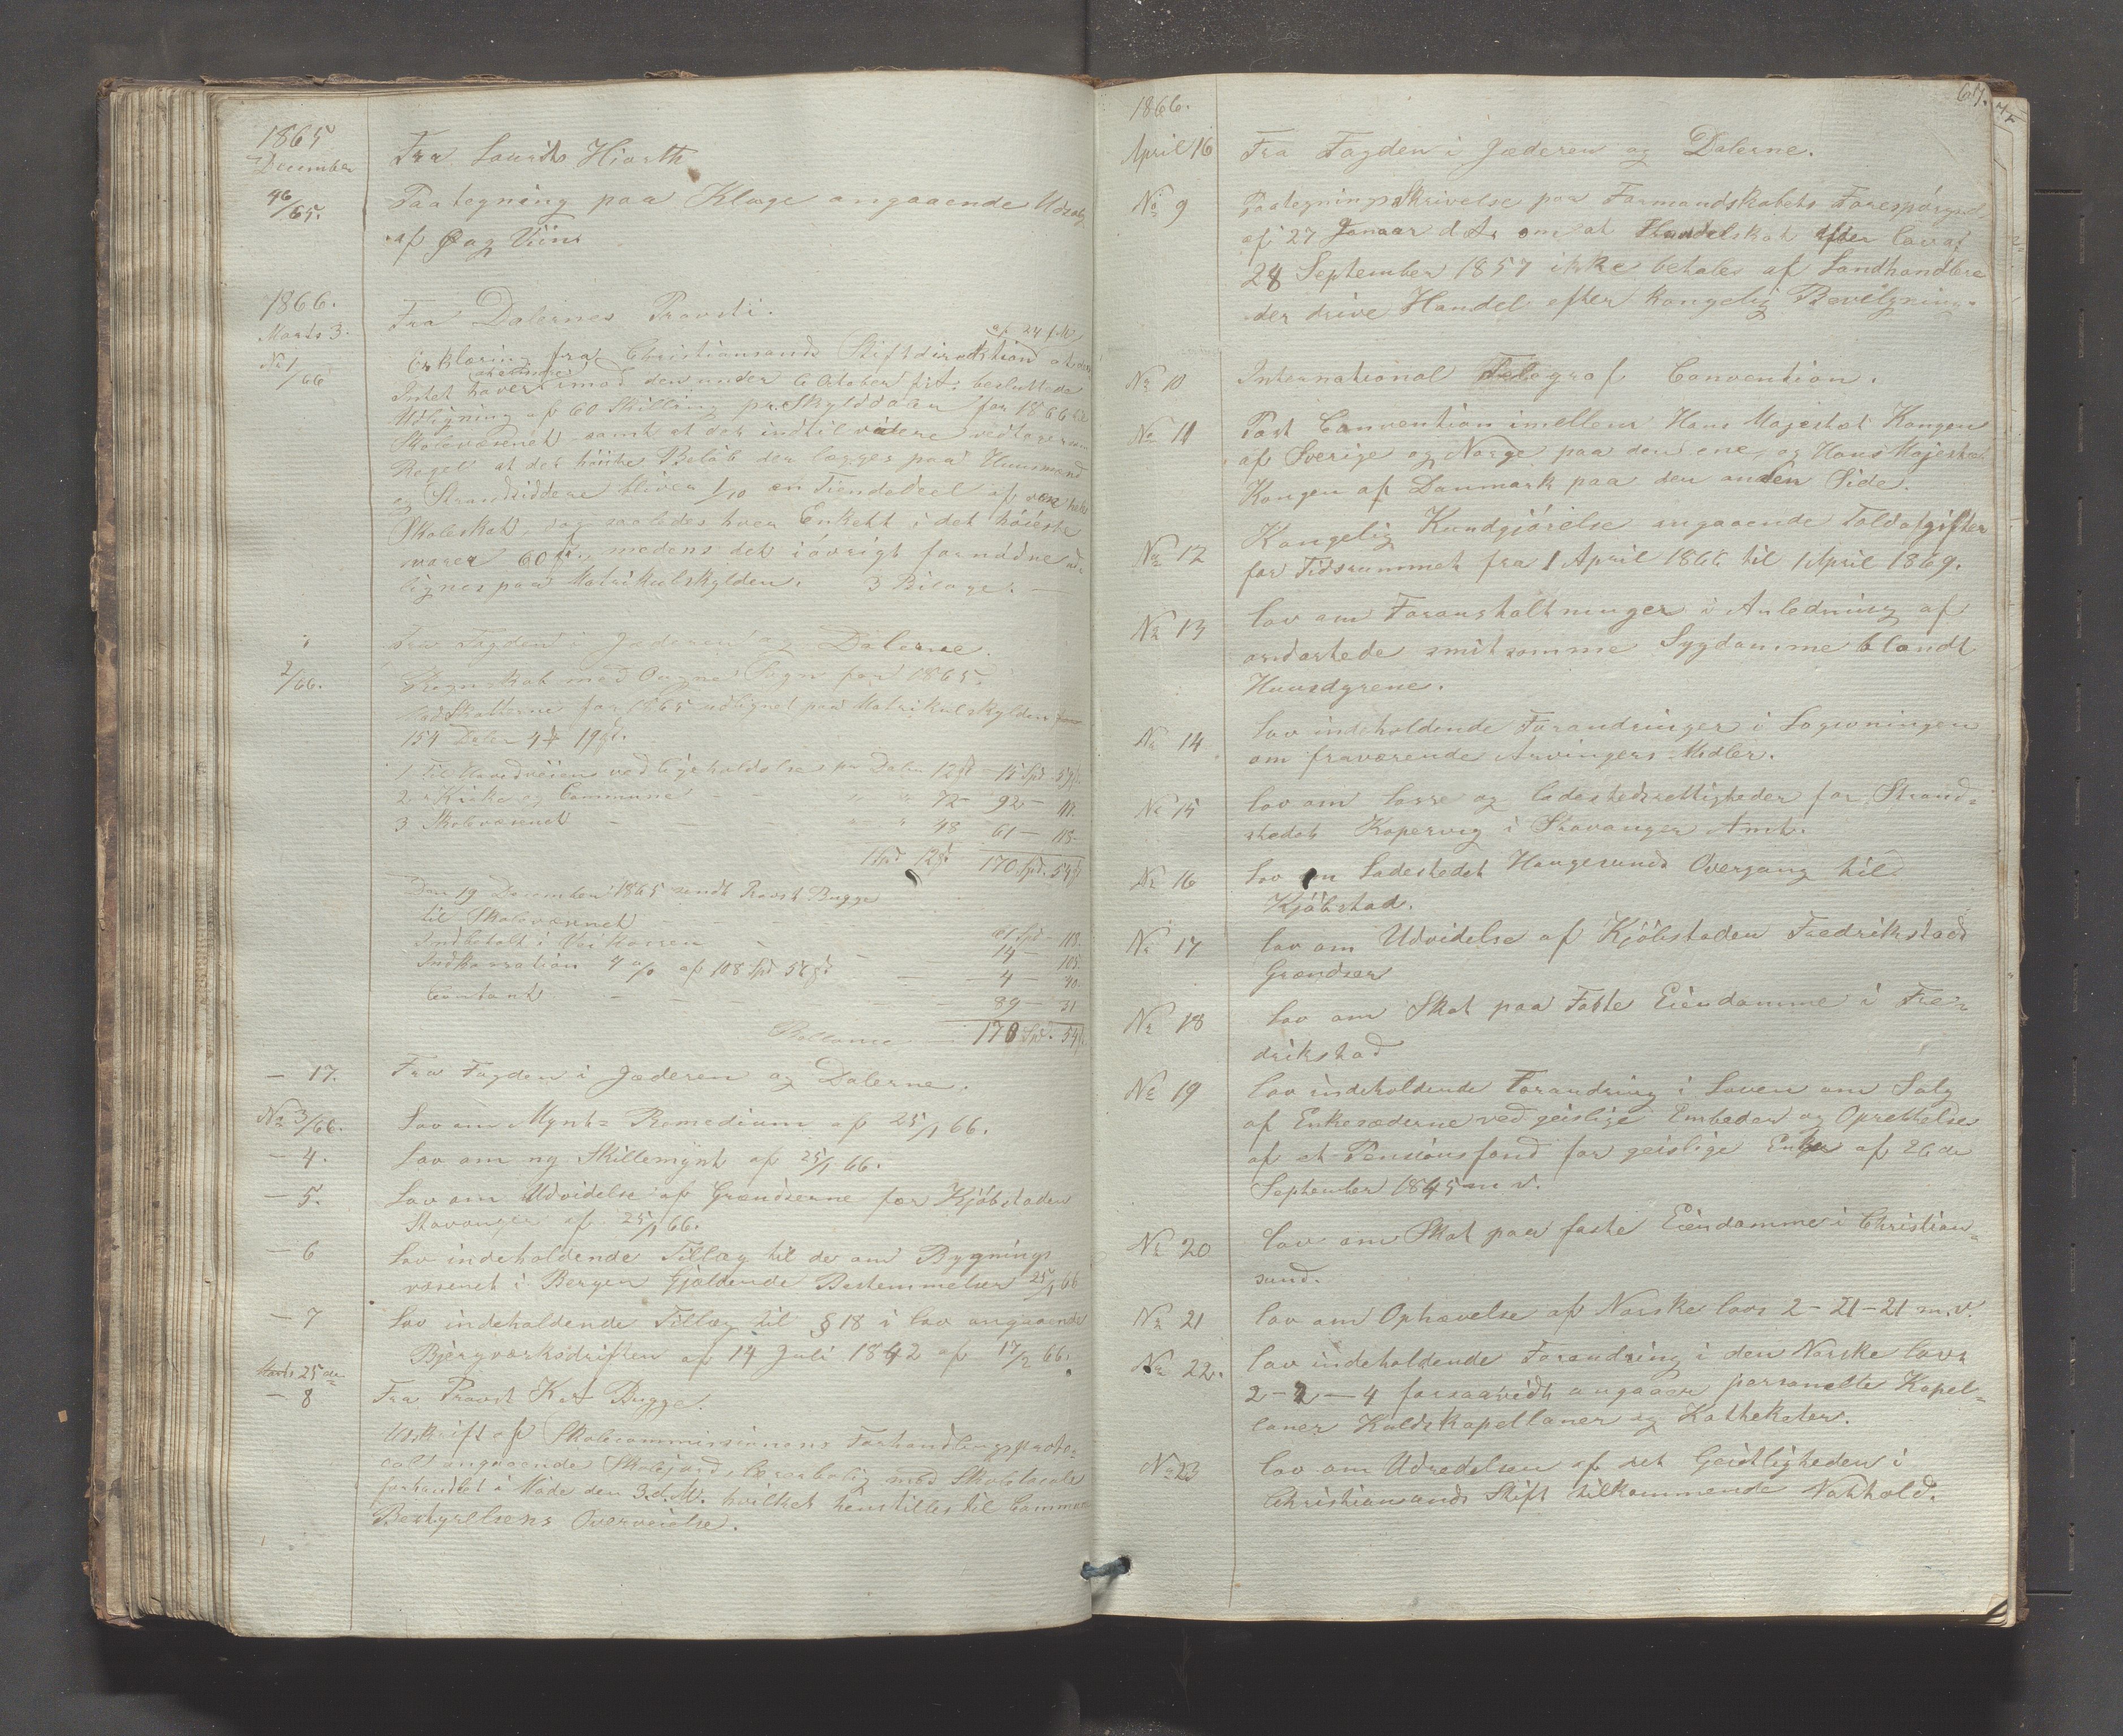 1865
December
Fra Laurits Hiorth
46/65.
Paategning paa Klage angaaende Udsalg
af Øl og Viin
1866.
Marts 3.
Fra Dalernes Provsti.
No 1/66
Erklæring fra Christiansands Stiftdirecktion af 24 f. M. at
Intet haver at erindre imod den under 6 October f. A. besluttede
Udligning af 60 Skilling pr. Skylddaler for 1866 til
Skolevæsenet samt at det indtil videre vedtages som
Regel at det høieste Beløb der lægges paa Huusmænd
og Strandsiddere bliver 1/10 en Tiendedeel af
Skoleskat, og saaledes hver Enkelt i det høieste
svarer 60 ß., medens det iøvrigt fornødne ud-
lignes paa Matrikulskylden. 3 Bilage. —
Fra Fogden i Jæderen og Dalerne.
2/66.
Regnskab med Ougne Sogn for 1865.
Skatterne for 1865 udlignet paa Matrikulskylden
154 Daler 4 ₰ 19 ß.
1. Til Hovedveiens vedligeholdelse pr Daler 12 ß — 15 Spd. 51 ß.
2. Kirke og Commune — — " " 72 — 92 —
3. Skolevæsenet — — " " 48 61 — 118 —
1 Spd 12 ß 170 Spd. 54 ß
Den 19 December 1865 sendt Provst Bugge
til Skolevæsenet 61 Spd — 118.
Indbetalt i Veikassen — 14 — 105.
Indkassation 4 % af 108 Spd 56 ß — 4 — 40.
Contant — — — 89 — 31
Ballance 170 Spd. 54 ß.
— 17.
Fra Fogden i Jæderen og Dalerne.
No 3/66.
Lov om Mynt-Remedium af 25/1 66.
— 4.
Lov om ny Skillemynt af 25/1 66.
— 5.
Lov om Udvidelse af Grændserne for Kjøbstaden
Stavanger af 25/1 66.
— 6
Lov indeholdende Tillæg til de om Bygnings
væsenet i Bergen Gjældende Bestemmelser 25/1 66
— 7
Lov indeholdende Tillæg til § 18 i lov angaaende
Bjergværksdriften af 14 Juli 1842 af 17/2 66.
Marts 25 de
— 8
Fra Provst K. Bugge.
Udskrift af Skolecommissionens Forhandlingsproto-
col angaaende Skolejord, Lærerbolig med Skolelocale
forhandlet i Møde den 3. d. M. hvilket henstilles til Commune
Bestyrelsens Overveielse.
67.
1866.
April 16
Fra Fogden i Jæderen og Dalerne.
No 9
Paategningsskrivelse paa Formandskabets Forespørgsel
af 27 Januar d. A. om at Handelskat efter Lov af
28 September 1857 ikke betales af Landhandlere
der drive Handel efter kongelig Bevilgning.
No 10
International Telegraf Convention.
No 11
Post Convention imellem Hans Majestæt Kongen
af Sverige og Norge paa den ene, og Hans Majestæt
Kongen af Danmark paa den anden Side.
No 12
Kongelig Kundgjørelse angaaende Toldafgifter
for Tidsrummet fra 1 April 1866 til 1 April 1869.
No 13
Lov om Foranstaltninger i Anledning af
ondartede smitsomme Sygdomme blandt
Huusdyrene.
No 14
Lov indeholdende Forandringer i Lovgivningen
om fraværende Arvingers Midler.
No 15
Lov om Losse og Ladestedsrettigheder for Strand-
stedet Kopervig i Stavanger Amt.
No 16
Lov om Ladestedet Haugesunds Overgang til
Kjøbstad.
No 17
Lov om Udvidelse af Kjøbstaden Fredrikstads
Grændser
No 18
Lov om Skat paa Faste Eiendomme i Fre-
drikstad
No 19
Lov indeholdende Forandring i Loven om Salg
af Enkesæderne ved geislige Embeder og Oprettelse
af et Pensionsfond for geislige Enker af 26 de
September 1845 m. v.
No 20
Lov om Skat paa faste Eiendomme i Christian-
sund.
No 21
Lov om Ophævelse af Norske lovs 2-21-21 m. v.
No 22.
Lov indeholdende Forandring i den Norske lovs
2-2-4 forsaavidt angaaer personelle Kapel-
laner Kaldskapellaner og Kathekater.
No 23
Lov om Udredelsen af det Geistligheden i
Christiansands Stift tilkommende Nathold.